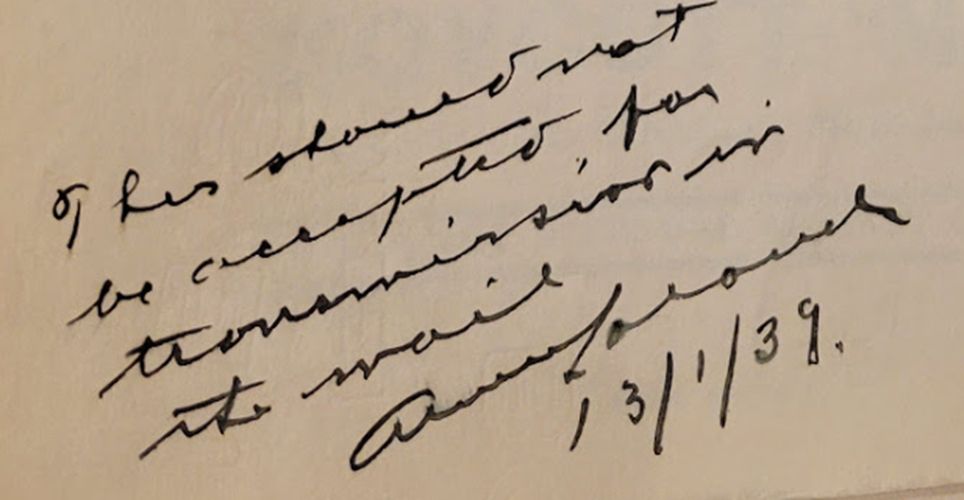 This should not
be accepted, for
transmission in
the mail
13/1/39.